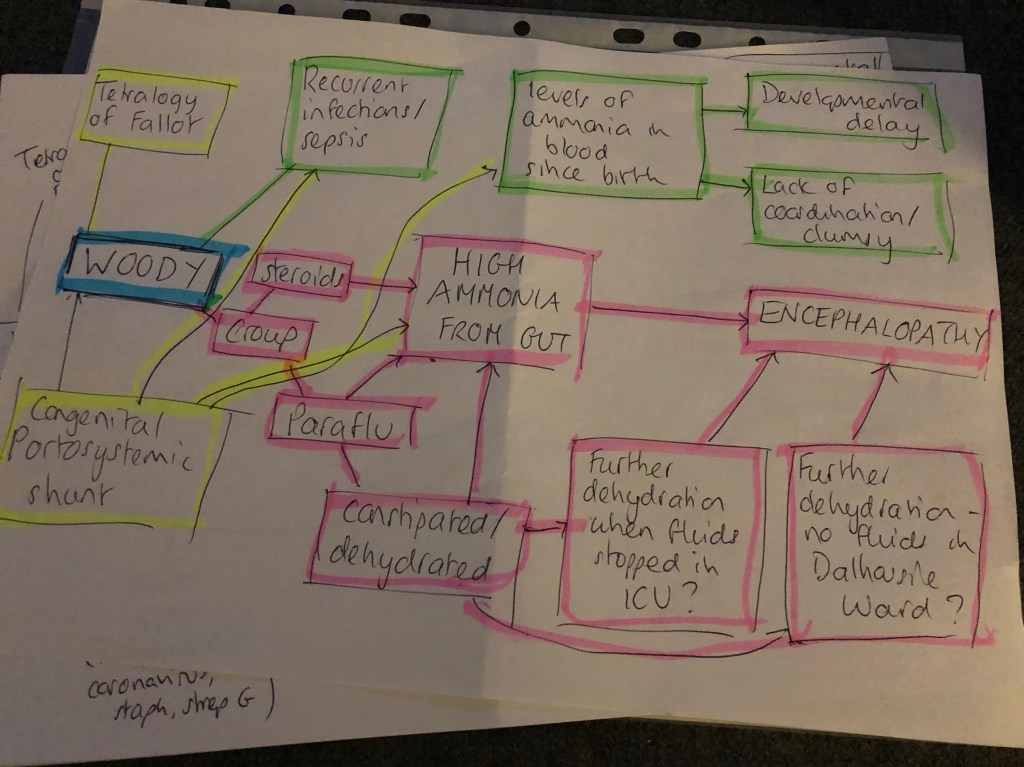 Tetralogy
of Fallot
Recurrent
infections/
sepsis
levels of
ammonia in
blood
since birth
Developmental
delay
Lack of
coordination/
clumsy
WOODY
steroids
Croup
HIGH
AMMONIA
FROM GUT
ENCEPHALOPATHY
Congenital
Portosystemic
shunt
Paraflu
Constipated/
dehydrated
Further
dehydration
when fluids
stopped in
ICU?
Further
dehydration -
no fluids in
Dalhousie
Ward?
coronavirus,
staph, strep G)